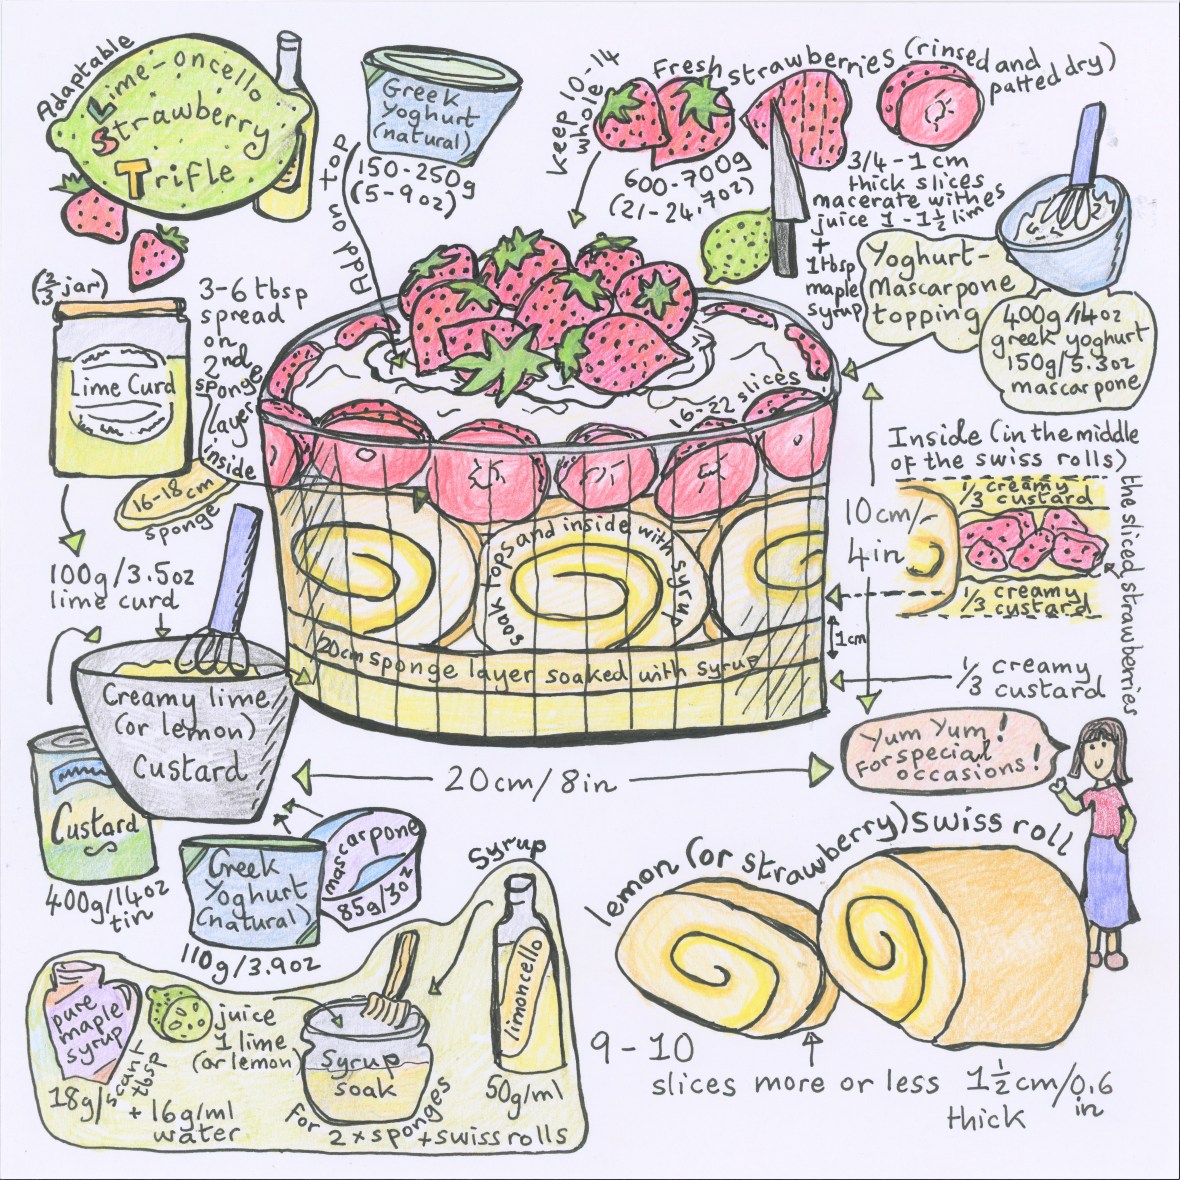 Adaptable
Lime-oncello
Strawberry
Trifle
Greek
Yoghurt
(natural)
150-250g
(5-9oz)
Add on top
keep 10-14
whole
Fresh strawberries (rinsed and
patted dry)
600-700g
(21-24.7oz)
3/4 - 1 cm
thick slices
macerate with
juice 1 - 1½ limes
+
1tbsp
maple
syrup
Yoghurt-
Mascarpone
topping
400g/14oz
greek yoghurt
150g/5.3oz
mascarpone
(⅔ jar)
Lime Curd
3-6 tbsp
spread
on
2nd
sponge
layer
inside
16-18 cm
sponge
100g/3.5oz
lime curd
16-22 slices
soak tops and inside with syrup
20cm sponge layer soaked with syrup
10cm/
4in
1cm
Inside (in the middle
of the swiss rolls)
⅓ creamy
custard
the sliced strawberries
⅓ creamy
custard
⅓ creamy
custard
Creamy lime
(or lemon)
Custard
Custard
400g/14oz
tin
Greek
Yoghurt
(natural)
110g/3.9oz
mascarpone
85g/3oz
20cm/8in
Yum Yum!
For special
occasions!
lemon (or strawberry) swiss roll
9-10
slices more or less 1½cm/0.6
in
thick
Syrup
limoncello
50g/ml
pure
maple
syrup
18g/scant
tbsp
juice
1 lime
(or lemon)
+ 16g/ml
water
Syrup
soak
for 2 x sponges + swiss rolls